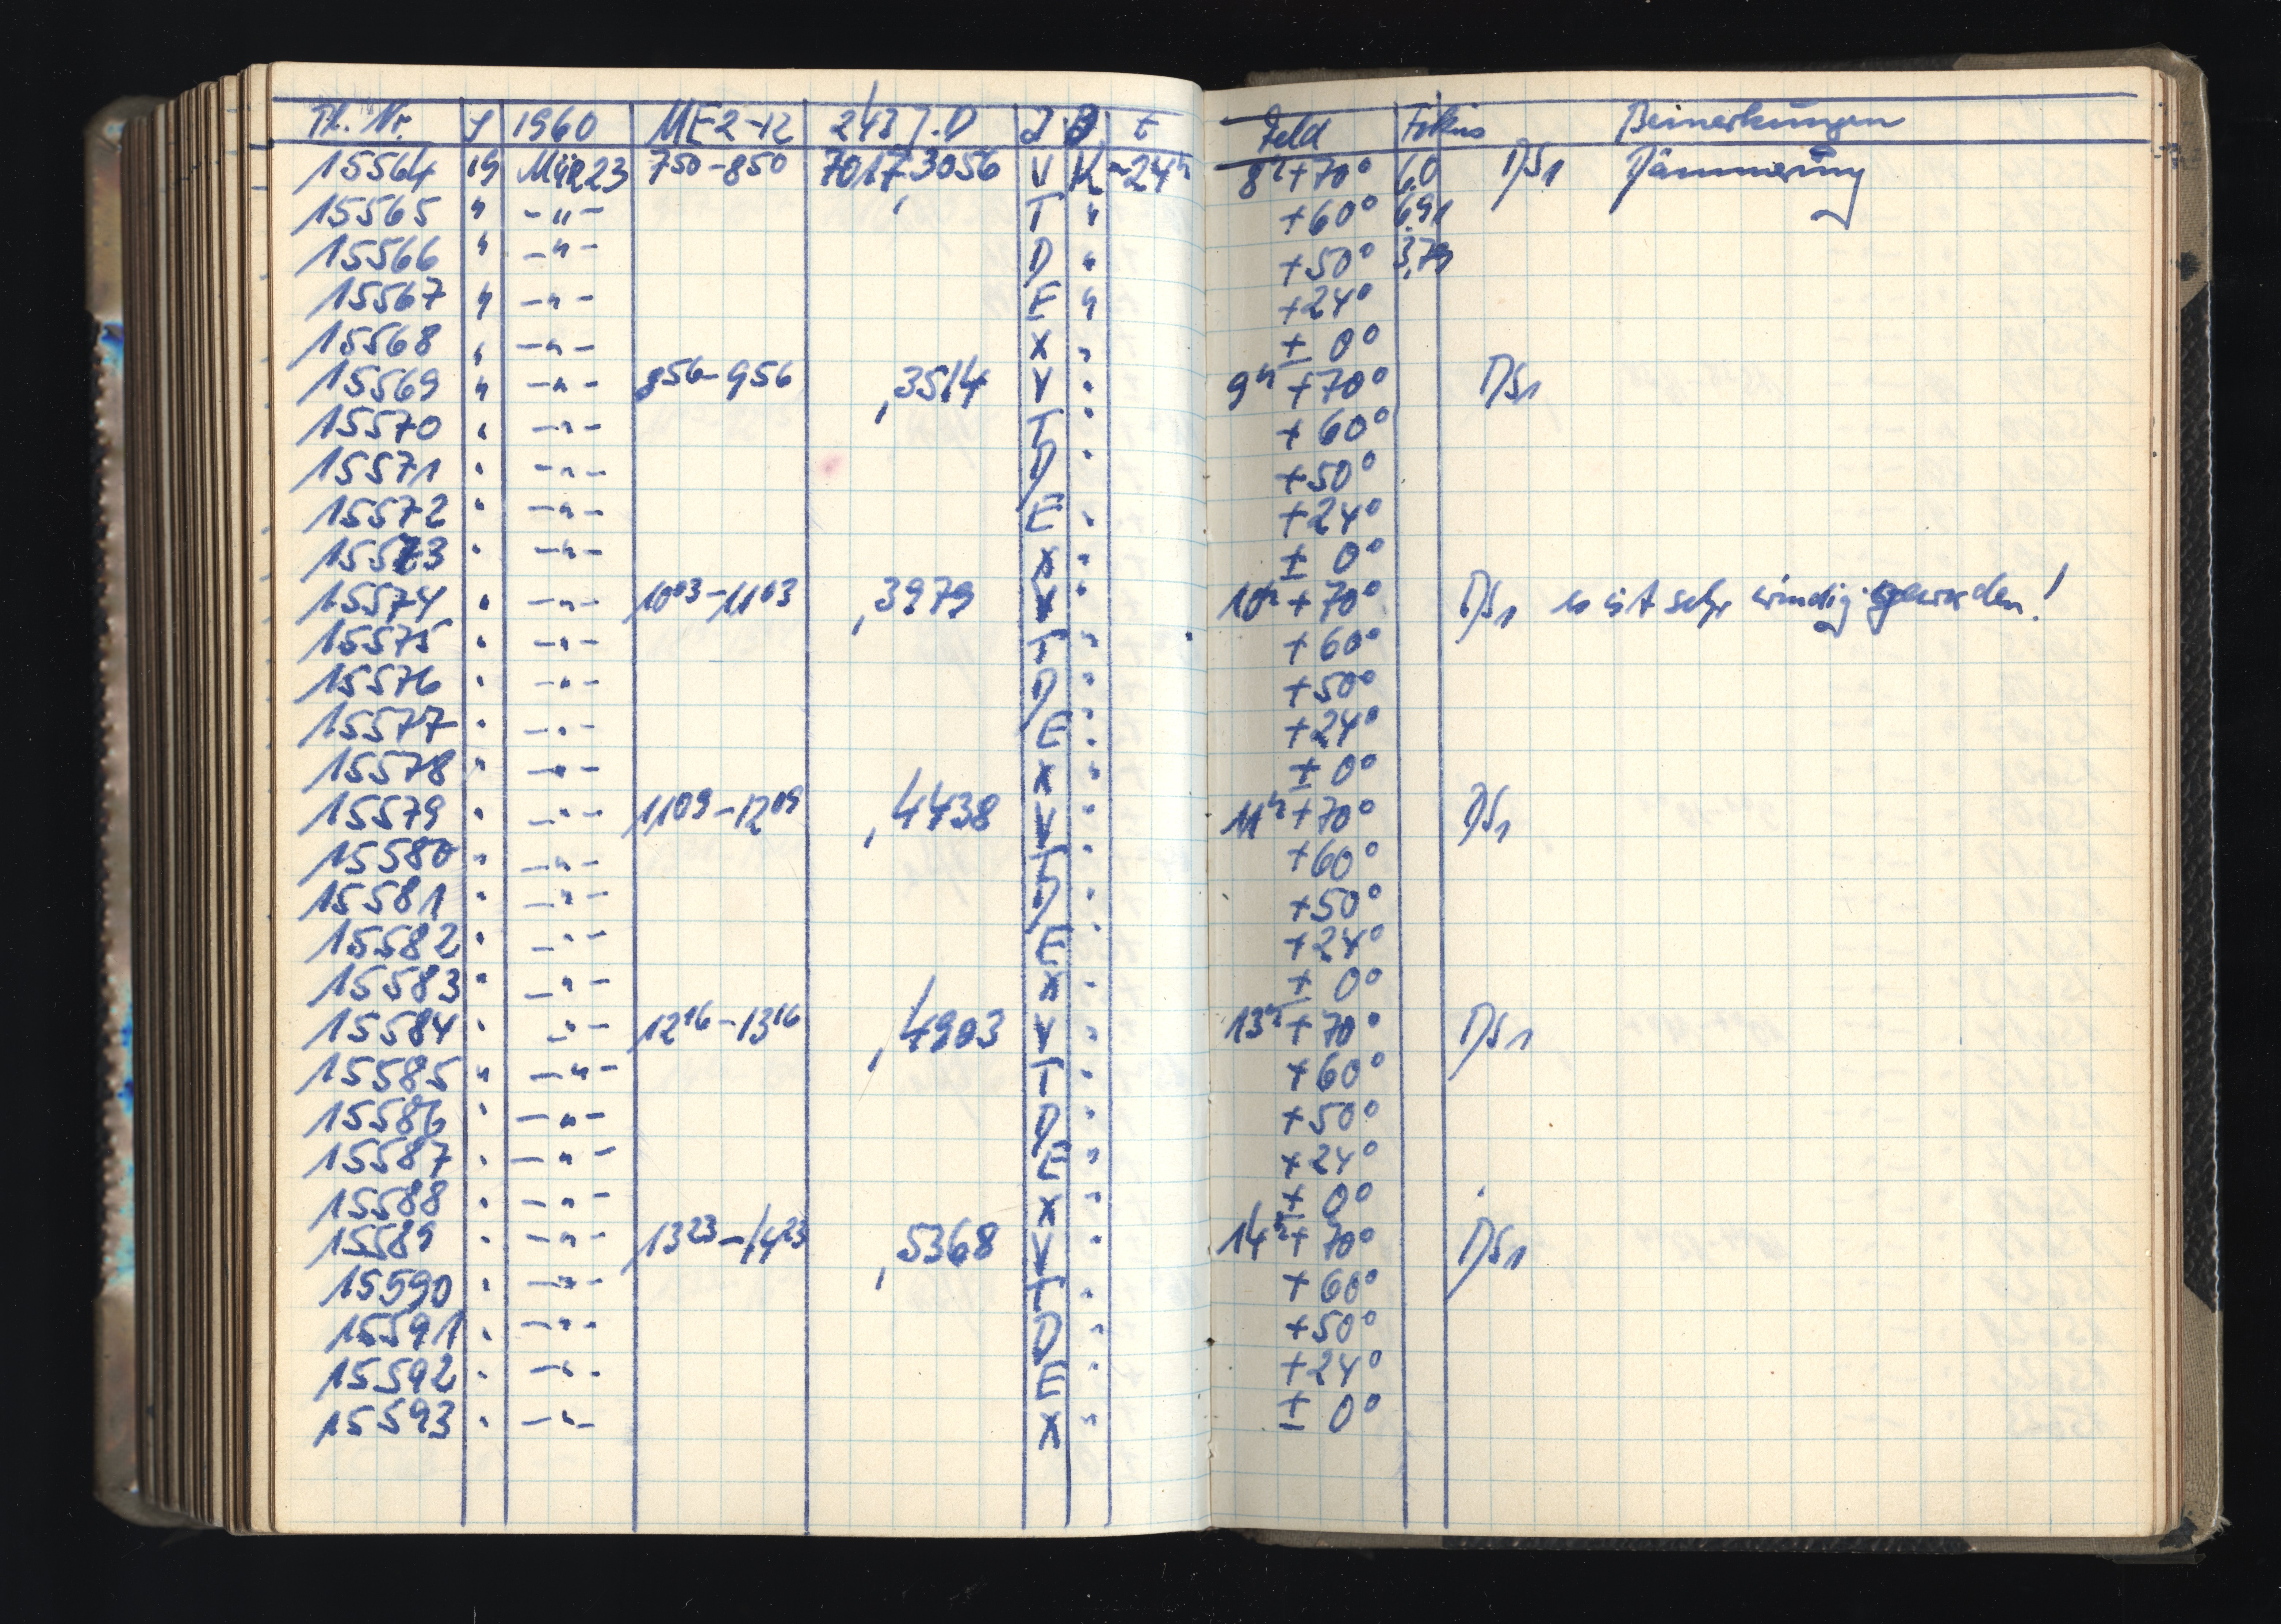 Pl. Nr. S 1960 MEZ-12 243 J.D J B t Feld Fokus Bemerkungen
15564 19 März 23 7 50 - 8 50 7017,3056 V K -24h 8h +70° 6,0 DS1 Dämmerung
15565 " -"- T " +60° 6,91
15566 " -"- D " +50° 3,79
15567 " -"- E " +24°
15568 " -"- X " ± 0°
15569 " -"- 8 56 - 9 56 ,3514 V " 9h +70° DS1
15570 " -"- T " +60°
15571 " -"- D " +50°
15572 " -"- E " +24°
15573 " -"- X " ± 0°
15574 " -"- 10 03 - 11 03 ,3979 V " 10h +70° DS1 es ist sehr windig geworden!
15575 " -"- T " +60°
15576 " -"- D " +50°
15577 " -"- E " +24°
15578 " -"- X " ± 0°
15579 " -"- 11 09 - 12 09 ,4438 V " 11h +70° DS1
15580 " -"- T " +60°
15581 " -"- D " +50°
15582 " -"- E " +24°
15583 " -"- X " ± 0°
15584 " -"- 12 16 - 13 16 ,4903 V " 13h +70° DS1
15585 " -"- T " +60°
15586 " -"- D " +50°
15587 " -"- E " +24°
15588 " -"- X " ± 0°
15589 " -"- 13 23 - 14 23 ,5368 V " 14h +70° DS1
15590 " -"- T " +60°
15591 " -"- D " +50°
15592 " -"- E " +24°
15593 " -"- X " ± 0°